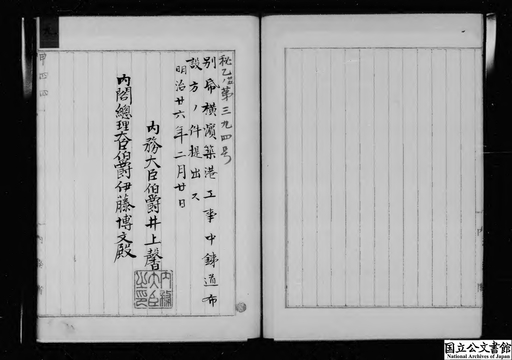 秘乙第三九四号
別冊横濱築港工事中鉄道布
設方ノ件提出ス
明治廿六年二月廿日
内務大臣伯爵井上馨
内閣總理大臣伯爵伊藤博文殿
内務大臣之印
国立公文書館
National Archives of Japan